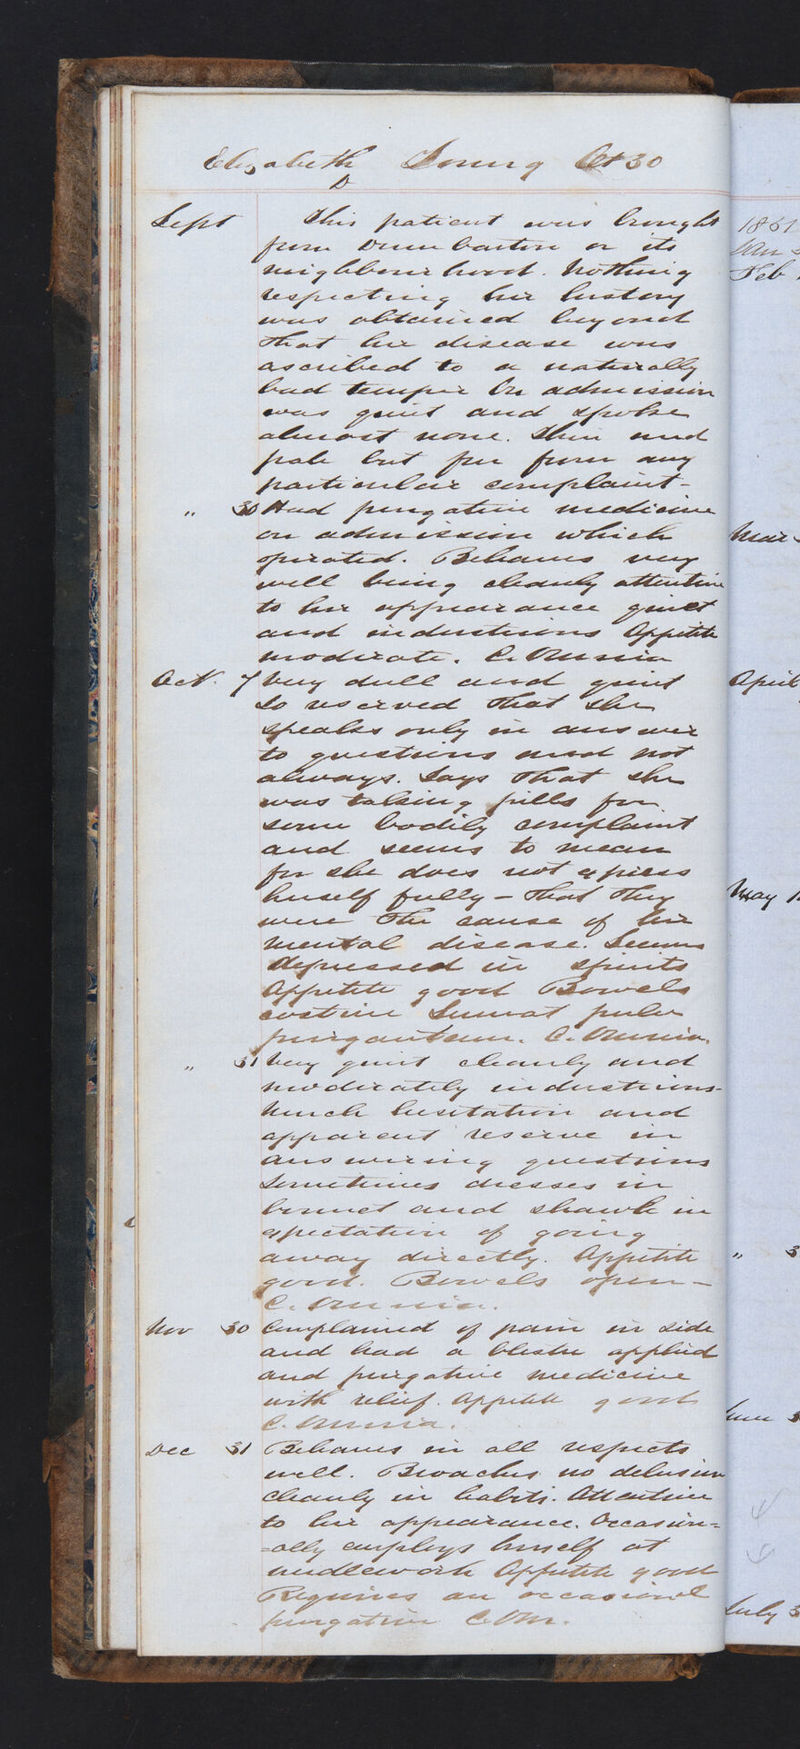 Elizabeth Young Aet 30
D
Sept This patient was brought
from Dumbarton or its
neighbourhood. Nothing
respecting her history
was obtained beyond
that her disease was
ascribed to a naturally
bad temper On admission
was quiet and spoke
almost none. Thin and
pale but free from any
particular complaint-
" 30 Had purgative medicine
on admission which
operated. Behaves very
well being cleanly attentive
to her appearance quiet
and industrious Appetite
moderate. C. Omnia
Oct. 7 Very dull and quiet
So reserved that she
speaks only in answer
to questions and not
always. Says that she
was taking pills for
some bodily complaint
and seems to mean
for she does not express
herself fully - that they
were the cause of her
mental disease. Seems
depressed in spirits
Appetite good Bowels
costive Sumat pulv
purgantem. C. Omnia.
" 31 Very quiet cleanly and
moderately industrious-
Much hesitation and
apparent reserve in
answering questions
Sometimes dresses in
bonnet and shawl in
expectation of going
away directly. Appetite
good. Bowels open-
C. Omnia.
Nov 30 Complained of pain in side
and had a blister applied
and purgative medicine
with relief. Appetite good
C. Omnia.
Dec 31 Behaves in all respects
well. Broaches no delusion
cleanly in habits. Attentive
to her appearance. Occasion=
=ally employs herself at
needlework Appetite good
Requires an occasional
purgative C. Om.
1851
Jan
Feb
Mar
April
May 1
" 3
June 3
July 3